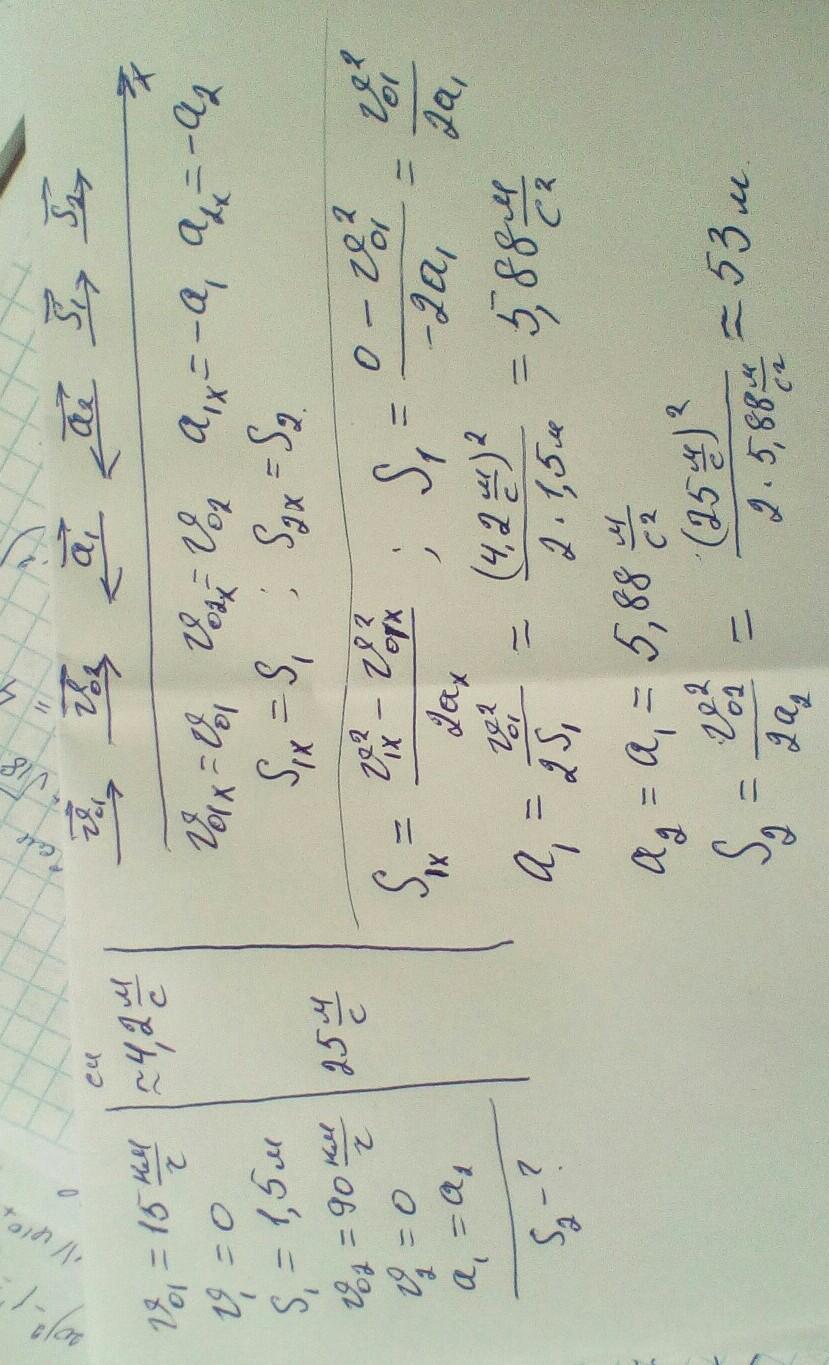 СИ
v₀₁ = 15 км/ч
≈ 4,2 м/с
v₁ = 0
S₁ = 1,5 м
v₀₂ = 90 км/ч
25 м/с
v₂ = 0
a₁ = a₂
S₂ – ?
v⃗₀₁ v⃗₀₂ a⃗₁ a⃗₂ S⃗₁ S⃗₂
x
v₀₁ₓ = v₀₁ v₀₂ₓ = v₀₂ a₁ₓ = –a₁ a₂ₓ = –a₂
S₁ₓ = S₁ ; S₂ₓ = S₂
S₁ₓ = (v₁ₓ² – v₀₁ₓ²)/(2aₓ) ; S₁ = (0 – v₀₁²)/(–2a₁) = v₀₁²/(2a₁)
a₁ = v₀₁²/(2S₁) = (4,2 м/с)²/(2 · 1,5 м) = 5,88 м/с²
a₂ = a₁ = 5,88 м/с²
S₂ = v₀₂²/(2a₂) = (25 м/с)²/(2 · 5,88 м/с²) ≈ 53 м